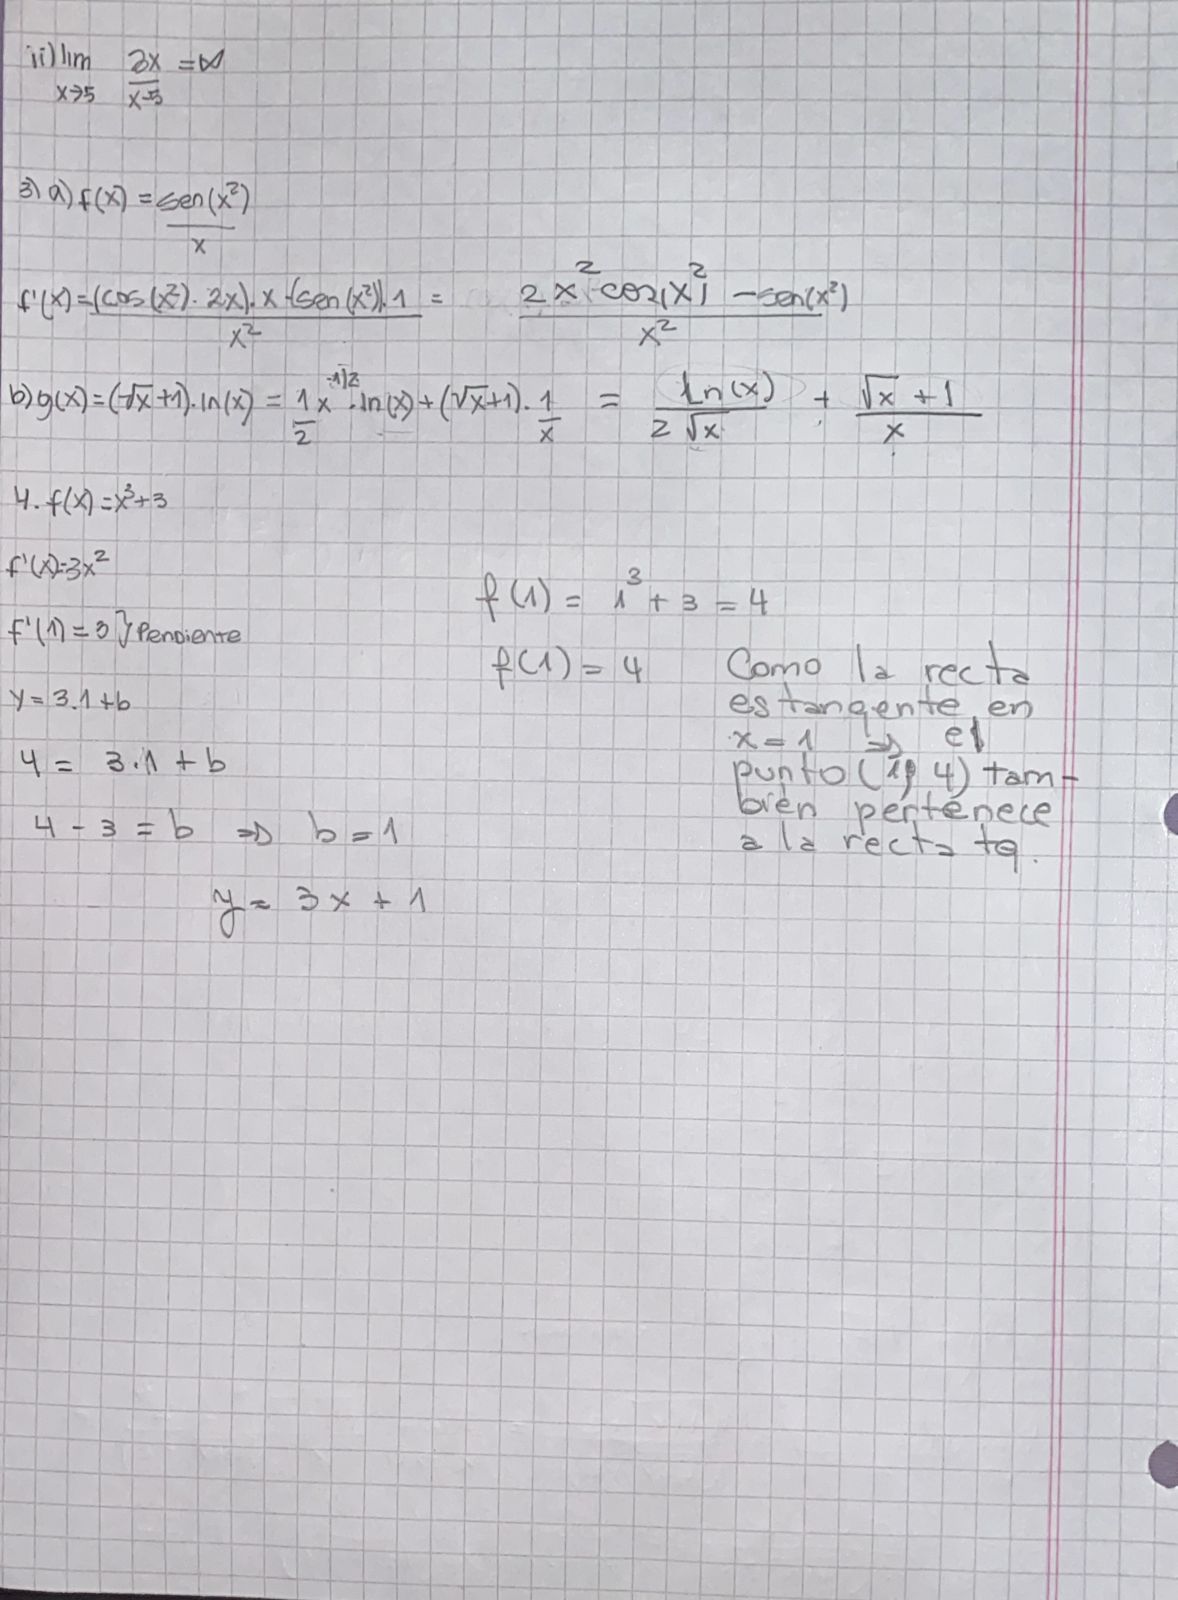 ii) lim 2x/x-5 = ∞
x→5
3) a) f(x) = sen(x²)/x
f'(x) = (cos(x²).2x).x-(sen(x²)).1/x² = 2x² cos(x)² - sen(x²)/x²
b) g(x) = (√x+1).ln(x) = 1/2 x^-1/2 . ln(x) + (√x+1).1/x = ln(x)/2√x + √x+1/x
4. f(x) = x³+3
f'(x)=3x²
f'(1) = 3 } Pendiente
y = 3.1+b
4 = 3.1 + b
4 - 3 = b ⇒ b = 1
y = 3x + 1
f(1) = 1³ + 3 = 4
f(1) = 4
Como la recta
es tangente en
x = 1 ⇒ el
punto (1, 4) tam-
bién pertenece
a la recta tg.